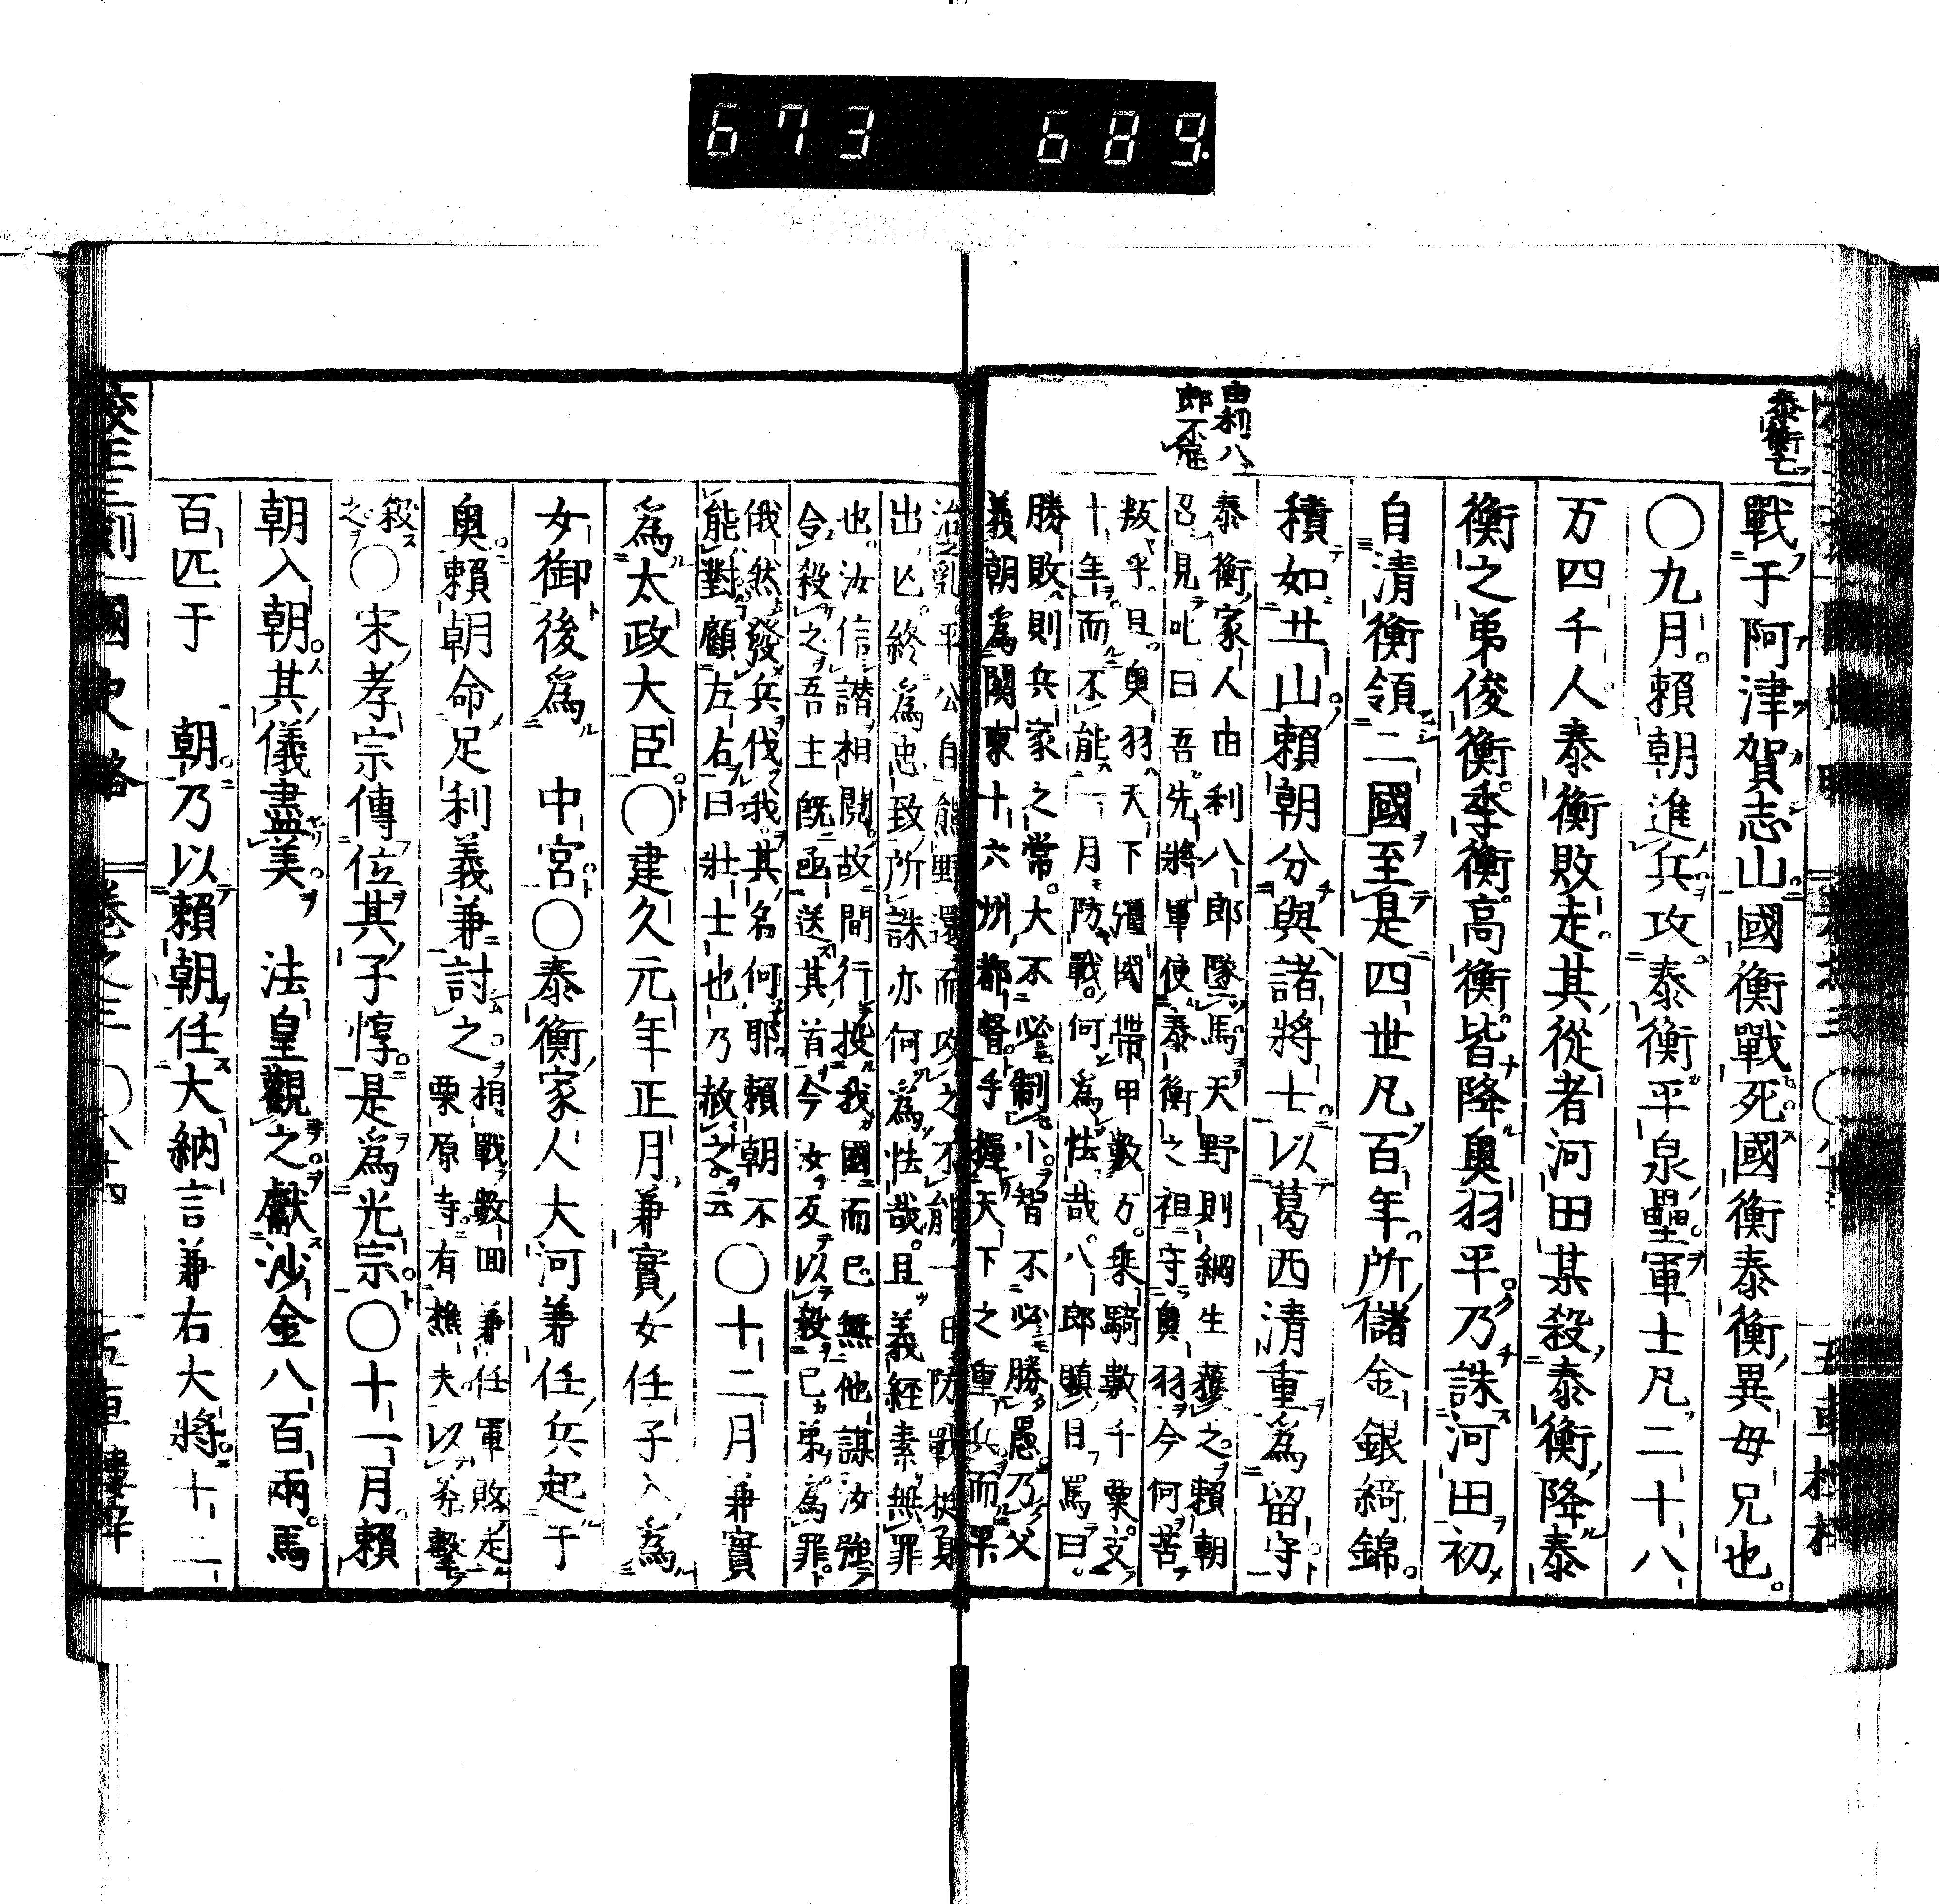 673 689.
泰衡亡
戰于阿津賀志山國衡戰死國衡泰衡異毋兄也。
〇九月。賴朝進兵攻泰衡平泉壘。軍士凡二十八
万四千人。泰衡敗走。其從者河田某殺泰衡降泰
衡之弟俊衡。季衡。高衡。皆降奧羽平。乃誅河田初
自清衡領二國至是四世凡百年。所儲金銀綺錦。
積如丠山。賴朝分與諸將士。以葛西清重爲留守
由利八
郎不屈
泰衡家人由利八郎墜馬。天野則綱生獲之。賴朝
召見叱曰吾先將軍使泰衡之祖守奧羽今何苦
叛乎。且奧羽天下疆國帶甲數万。乗騎數千粟支
十年。而不能一月防戰。何爲怯哉。八郎瞋目罵曰。
勝敗則兵家之常。大不必制小。智不必勝愚。乃父
義朝爲関東十六州都督手握天下之重兵。而平
治之乱。平公自熊野還而攻之不能一日防戰挺身
出亾。終爲忠致所誅亦何爲怯哉。且義經素無罪
也。汝信譛相鬩。故間行投我國而已無他謀汝強
令殺之吾主既函送其首今汝反以殺己弟爲罪。
俄然發兵伐我。其名何耶。賴朝不
能對顧左右曰壯士也乃赦之云
〇十二月兼實
爲太政大臣。〇建久元年正月。兼實女任子入爲
女御後爲 中宮〇泰衡家人大河兼任兵起于
奧。賴朝命足利義兼討之。
相戰數囬兼任軍敗走
栗原寺。有樵夫以斧擊
殺
之
〇宋孝宗傳位其子惇。是爲光宗。〇十一月。賴
朝入朝。其儀盡美。 法皇觀之。獻沙金八百兩。馬
百匹于 朝。乃以賴朝任大納言兼右大將。十二
校正三刻國史略 卷之三 〇八十四 五車樓梓